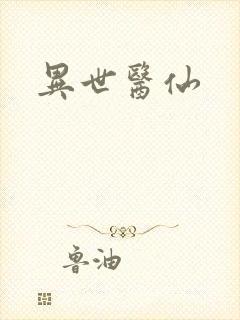 異世醫仙
魯油